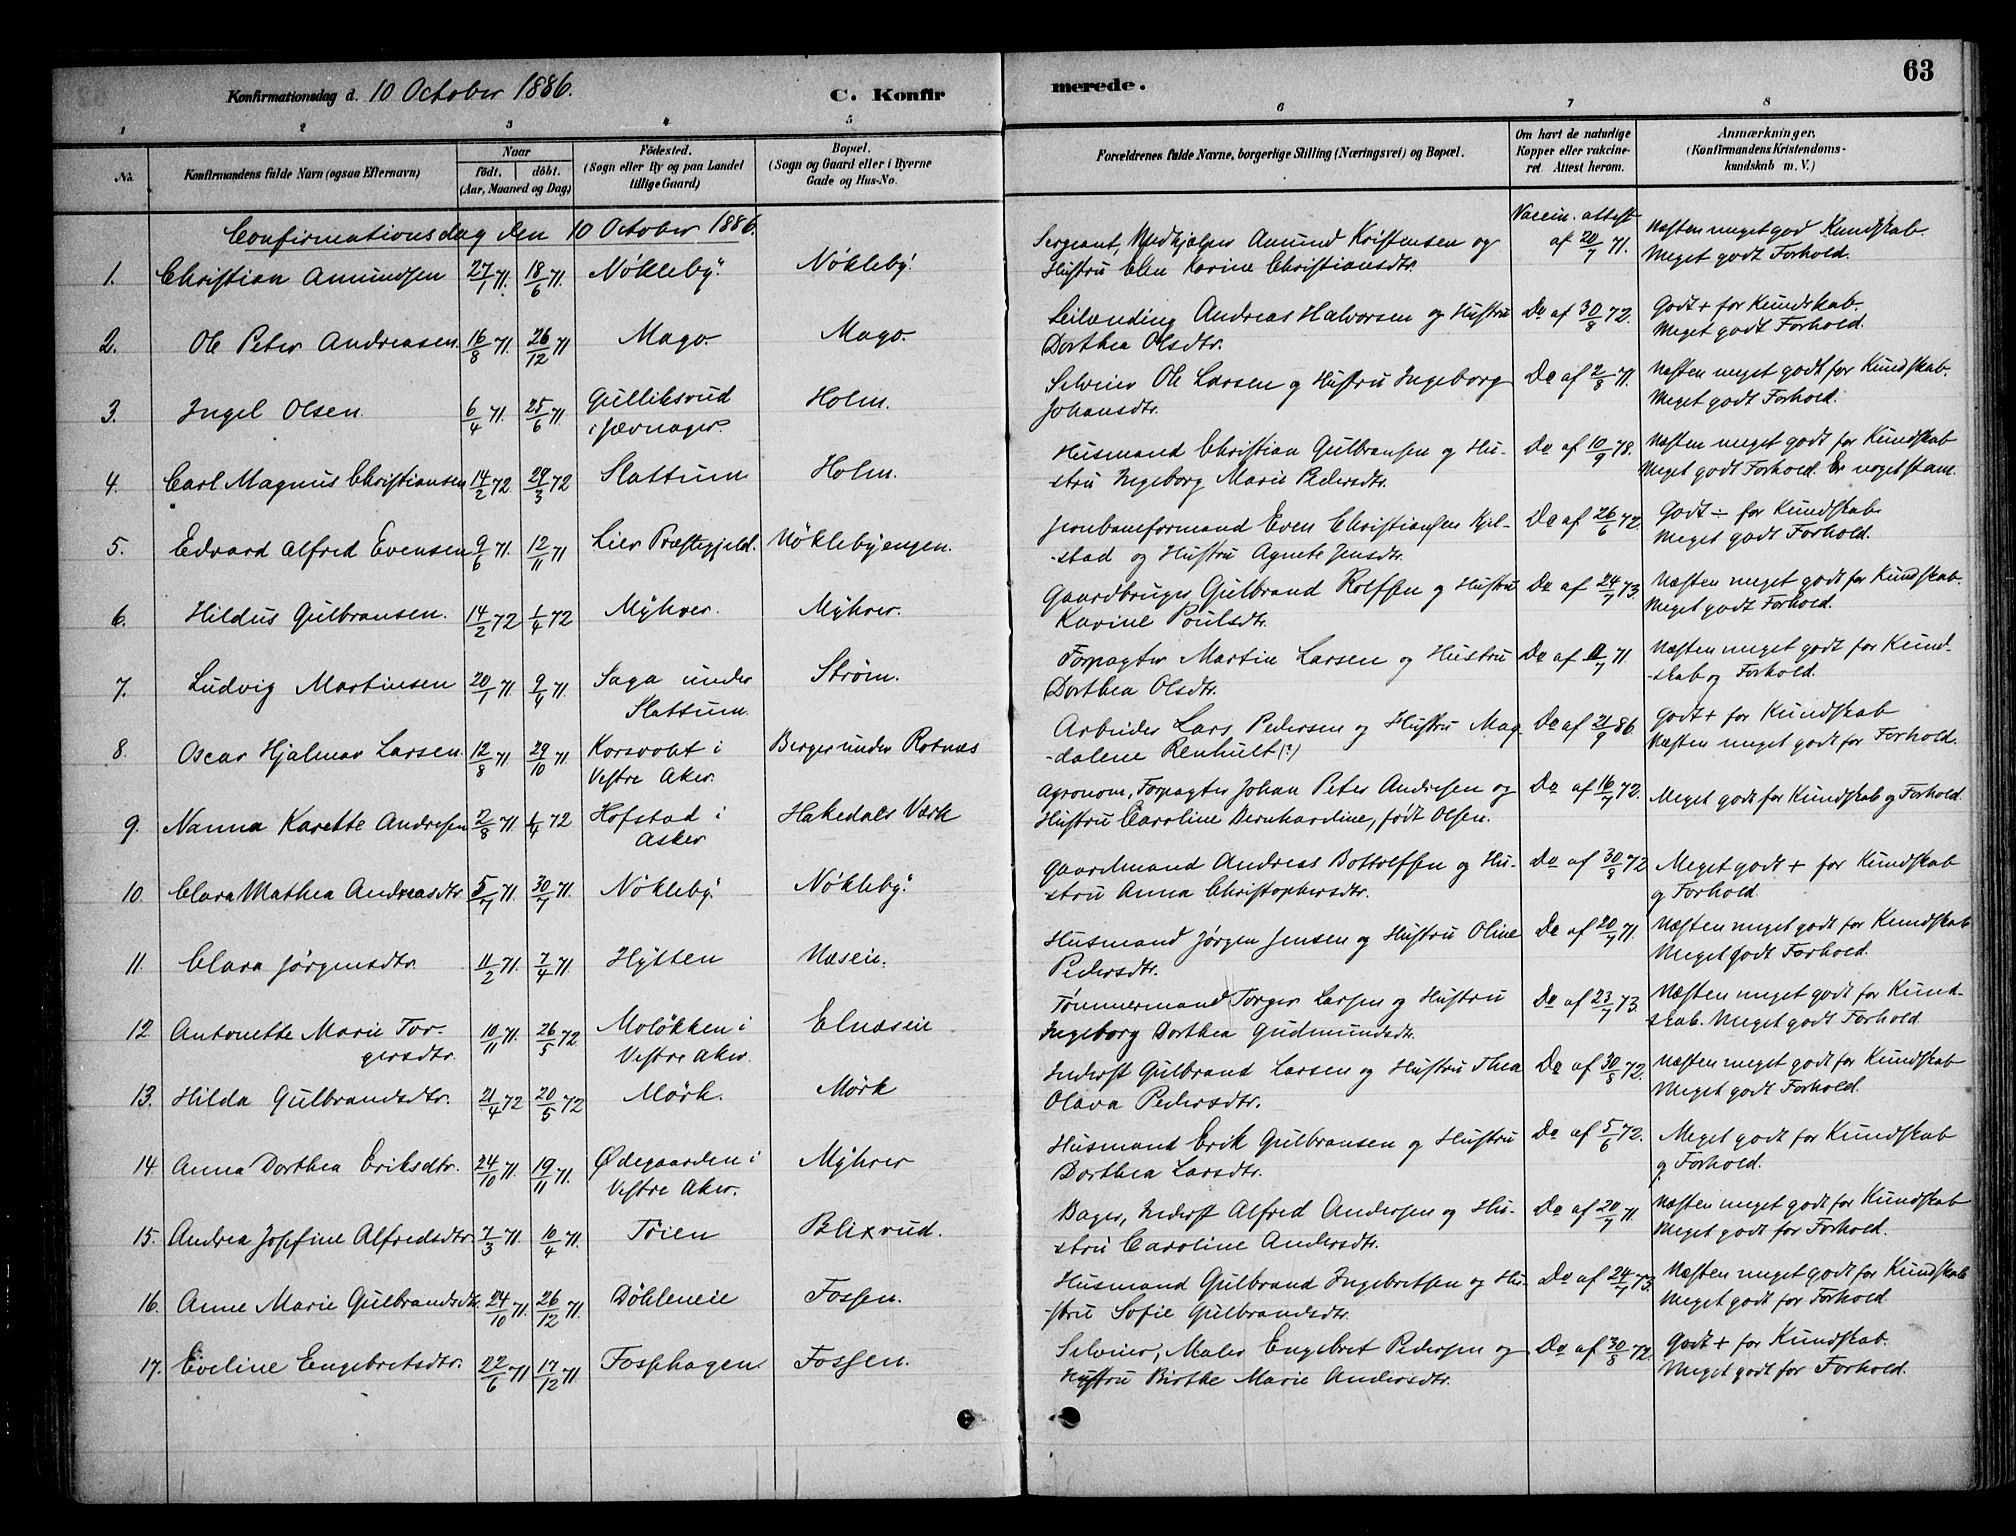 Konfirmationsdag d. 10 October 1886.
C. Konfirmerede.
63
1 2 3 4 5 6 7 8
No.
Konfirmandens fulde Navn (ogsaa Efternavn)
Naar
födt. döbt.
(Aar, Maaned og Dag)
Födested.
(Sogn eller By og paa Landet
tillige Gaard)
Bopæl.
(Sogn og Gaard eller i Byerne
Gade og Hus-No.
Forældrenes fulde Navne, borgerlige Stilling (Næringsvei) og Bopæl.
Om havt de naturlige
Kopper eller vakcine-
ret Attest herom.
Anmærkninger,
(Konfirmandens Kristendoms-
kundskab m. V.)
Confirmationsdag den 10 October 1886.
1. Christian Amundsen 27/1 71. 18/6 71. Nökleby. Nökleby.
Sergeant, Medhjelper Amund Kristensen og
Hustru Elen Karine Christiansdtr.
Vaccin. attest
af 20/7 71.
Næsten meget god Kundskab.
Meget godt Forhold.
2. Ole Peter Andreasen. 16/8 71. 26/12 71 Mago. Mago.
Leilending Andreas Halvorsen og Hustru
Dorthea Olsdtr.
Do af 30/8 72.
Godt + for Kundskab.
Meget godt Forhold.
3. Ingel Olsen. 6/4 71. 25/6 71. Gulliksrud
i Jevnager. Holm.
Selveier Ole Larsen og Hustru Ingeborg
Johansdtr.
Do af 2/8 71.
Næsten meget godt for Kundskab.
Meget godt Forhold.
4. Carl Magnus Christiansen 14/2 72 29/3 72 Slattum Holm.
Husmand Christian Gulbransen og Hu-
stru Ingeborg Marie Pedersdtr.
Do af 10/9 78.
Næsten meget godt for Kundskab
Meget godt Forhold. Er noget stam.
5. Edvard Alfred Evensen 9/6 71. 12/11 71 Lier Præstegjeld. Nöklebyengen.
Jernbaneformand Even Christiansen Kjel-
-stad og Hustru Agnete Jensdtr.
Do af 26/6 72.
Godt ÷ for Kundskab
Meget godt Forhold.
6. Hildus Gulbransen. 14/2 72 1/4 72 Myhrer. Myhrer.
Gaardbruger Gulbrand Rolfsen og Hustru
Karine Poulsdtr.
Do af 24/7 73.
Næsten meget godt for Kundskab.
Meget godt Forhold.
7. Ludvig Martinsen 20/1 71. 9/4 71. Saga under
Slattum. Strøm.
Forpagter Martin Larsen og Hustru
Dorthea Olsdtr.
Do af 11/7 71.
Næsten meget godt for Kund-
-skab og Forhold.
8. Oscar Hjalmar Larsen. 12/8 71 29/10 71 Korsvoldt i
Vestre Aker. Berger under Rotnæs
Arbeider Lars Pedersen og Hustru Mag
-dalene Renhult (?)
Do af 21/9 86.
Godt + for Kundskab
Næsten meget godt for Forhold.
9. Nanna Karette Andresen 2/8 71. 1/4 72 Hofstad i
Asker Hakedals Værk
Agronom, Forpagter Johan Peter Andresen og
Hustru Caroline Bernhardine, født Olsen.
Do af 16/7 72.
Meget godt for Kundskab og Forhold.
10. Clara Mathea Andreasdtr 5/7 71. 30/7 71. Nökleby. Nökleby.
Gaardmand Andreas Bottolfsen og Hu-
stru Anna Christophersdtr.
Do af 30/8 72
Meget godt + for Kundskab
og Forhold.
11. Clara Jörgensdtr. 11/2 71. 7/4 71. Hytten Næseie.
Husmand Jørgen Jensen og Hustru Oline
Pedersdtr.
Do af 20/7 71.
Næsten meget godt for Kundskab
Meget godt Forhold.
12. Antonette Marie Tor-
gersdtr. 10/11 71. 26/5 72 Molökken i
Vestre Aker. Elnæseie
Tömmermand Torger Larsen og Hustru
Ingeborg Dorthea Gudmundsdtr.
Do af 23/7 73.
Næsten meget godt for Kund-
skab. Meget godt Forhold.
13. Hilda Gulbrandsdtr. 21/4 72 20/5 72 Mörk. Mörk
Inderst Gulbrand Larsen og Hustru Thea
Olava Pedersdtr.
Do af 30/8 72.
Næsten meget godt for Kundskab
Meget godt Forhold.
14. Anna Dorthea Eriksdtr. 24/10 71. 19/11 71. Ødegaarden i
Vestre Aker. Myhrer
Husmand Erik Gulbransen og Hustru
Dorthea Larsdtr.
Do af 5/6 72.
Meget godt for Kundskab
og Forhold.
15. Andrea Josefine Alfredsdtr. 7/3 71. 10/4 71. Töien Blixrud.
Bager, Inderst Alfred Andersen og Hu-
stru Caroline Andersdtr.
Do af 20/7 71.
Næsten meget godt for Kundskab
Meget godt for Forhold.
16. Anne Marie Gulbrandsdtr. 24/10 71. 26/12 71. Döhleneie Fossen.
Husmand Gulbrand Ingebretsen og Hu-
-stru Sofie Gulbrandsdtr.
Do af 24/7 73.
Næsten meget godt for Kundskab
Meget godt for Forhold.
17. Eveline Engebretsdtr. 22/6 71 17/12 71. Fosshagen. Fossen.
Selveier, Maler Engebret Pedersen og
Hustru Birthe Marie Andersdtr.
Do af 30/8 72.
Godt + for Kundskab.
Meget godt for Forhold.